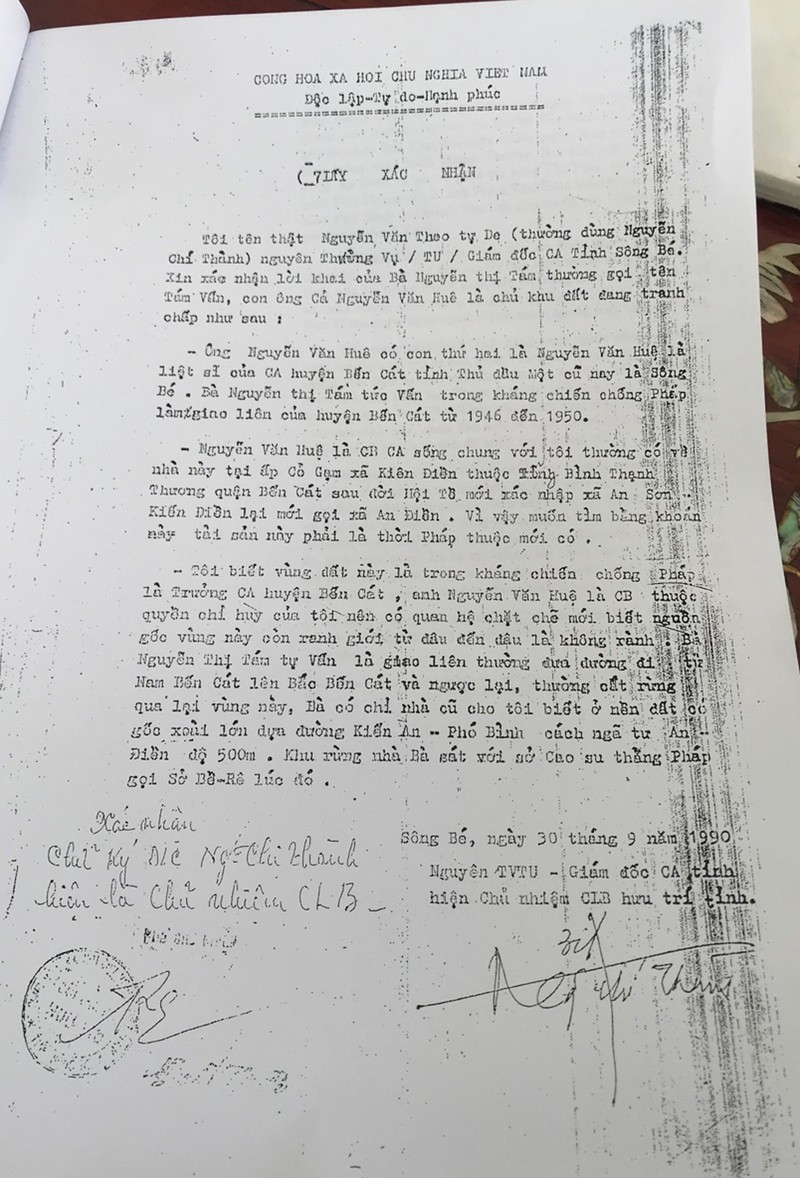 CONG HOA XA HOI CHU NGHIA VIET NAM
Độc lập-Tự do-Hạnh phúc
XÁC NHẬN
Tôi tên thật Nguyễn Văn Theo tự Dẹ (thường dùng Nguyễn
Chí Thành) nguyên Thường Vụ / TU / Giám đốc CA Tỉnh Sông Bé.
Xin xác nhận lời khai của Bà Nguyễn thị Tám thường gọi tên
Tám Vấn, con Ông Cả Nguyễn Văn Huê là chủ khu đất đang tranh
chấp như sau :
- Ông Nguyễn Văn Huê có con thứ hai là Nguyễn Văn Huệ là
liệt sĩ của CA huyện Bến Cát tỉnh Thủ dầu Một cũ nay là Sông
Bé . Bà Nguyễn thị Tám tức Vấn trong kháng chiến chống Pháp
làm giao liên của huyện Bến Cát từ 1946 đến 1950.
- Nguyễn Văn Huệ là CB CA sống chung với tôi thường có về
nhà này tại ấp Cỏ Gạm xã Kiên Điền thuộc Tỉnh Bình Thạnh
Thương quận Bến Cát sau đời Hội Tề mới xác nhập xã An Sơn -
Kiến Điền lại mới gọi xã An Điền . Vì vậy muốn tìm bằng khoán
này tài sản này phải là thời Pháp thuộc mới có .
- Tôi biết vùng đất này là trong kháng chiến chống Pháp
là Trưởng CA huyện Bến Cát , anh Nguyễn Văn Huệ là CB thuộc
quyền chỉ huy của tôi nên có quan hệ chặt chẽ mới biết nguồn
gốc vùng này còn ranh giới từ đâu đến đâu là không rành . Bà
Nguyễn Thị Tám tự Vấn là giao liên thường đưa đường đi từ
Nam Bến Cát lên Bắc Bến Cát và ngược lại, thường cắt rừng
qua lại vùng này, Bà có chỉ nhà cũ cho tôi biết ở nền đất có
gốc xoài lớn dựa đường Kiến An - Phó Bình cách ngã tư An
Điền độ 500m . Khu rừng nhà Bà sát với sở Cao su thằng Pháp
gọi Sở Bồ-Rê lúc đó .
Xác nhận
Chữ ký Đ/C Ng. Chí Thành
hiện là Chủ nhiệm CLB -
Sông Bé, ngày 30 tháng 9 năm 1990
Nguyên TVTU - Giám đốc CA tỉnh
hiện Chủ nhiệm CLB hưu trí tỉnh.